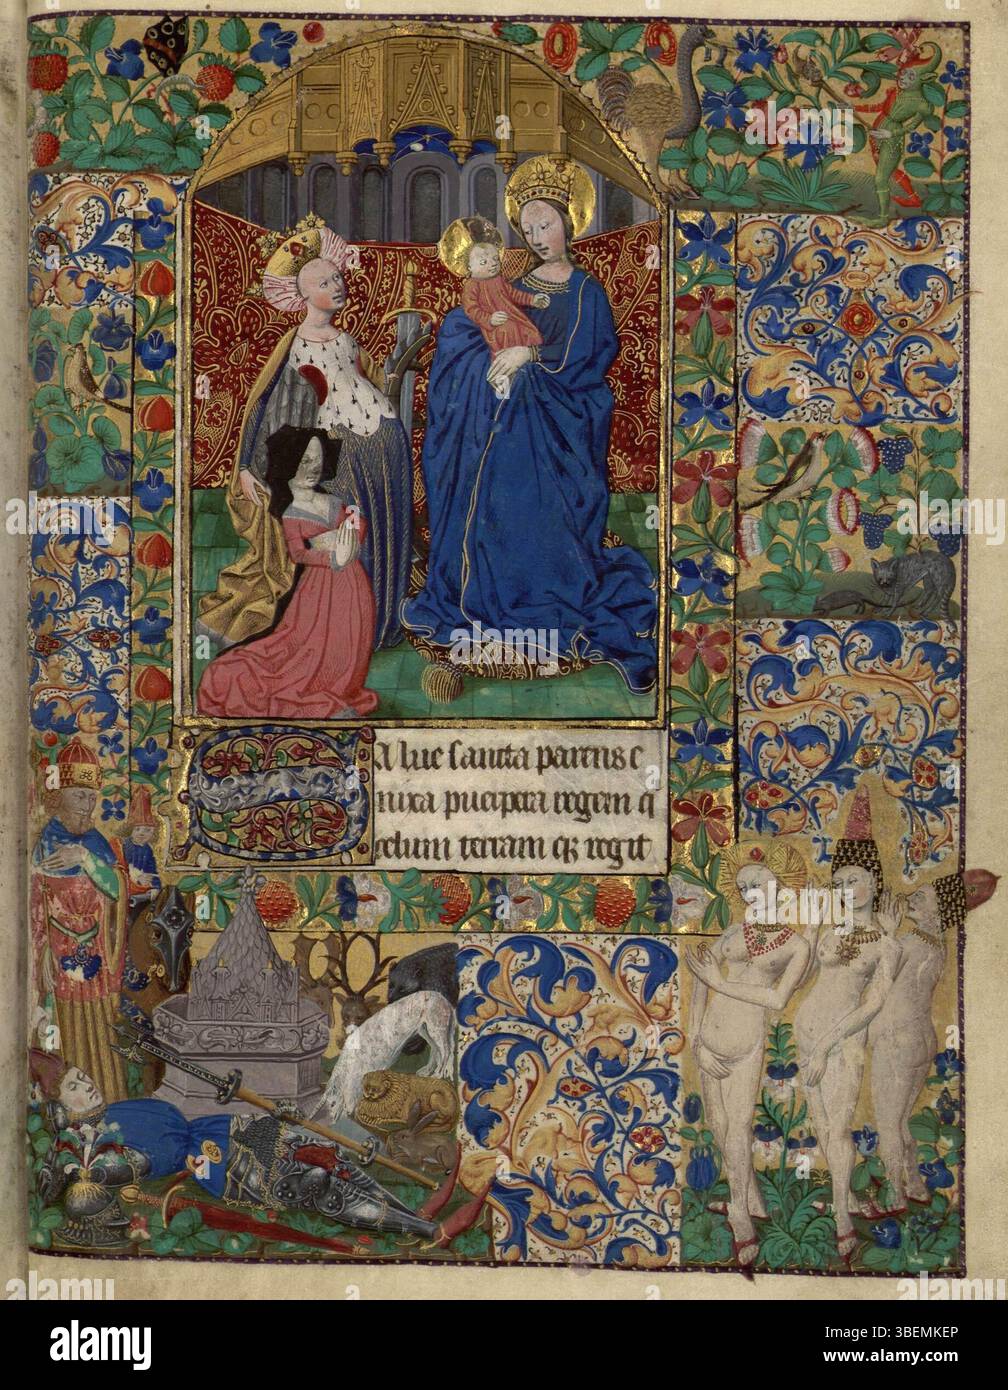 SAlue sancta parens e
nixa puerpera regem q
celum terram qȝ regit
alamy
Image ID: 3BEMKEP
www.alamy.com